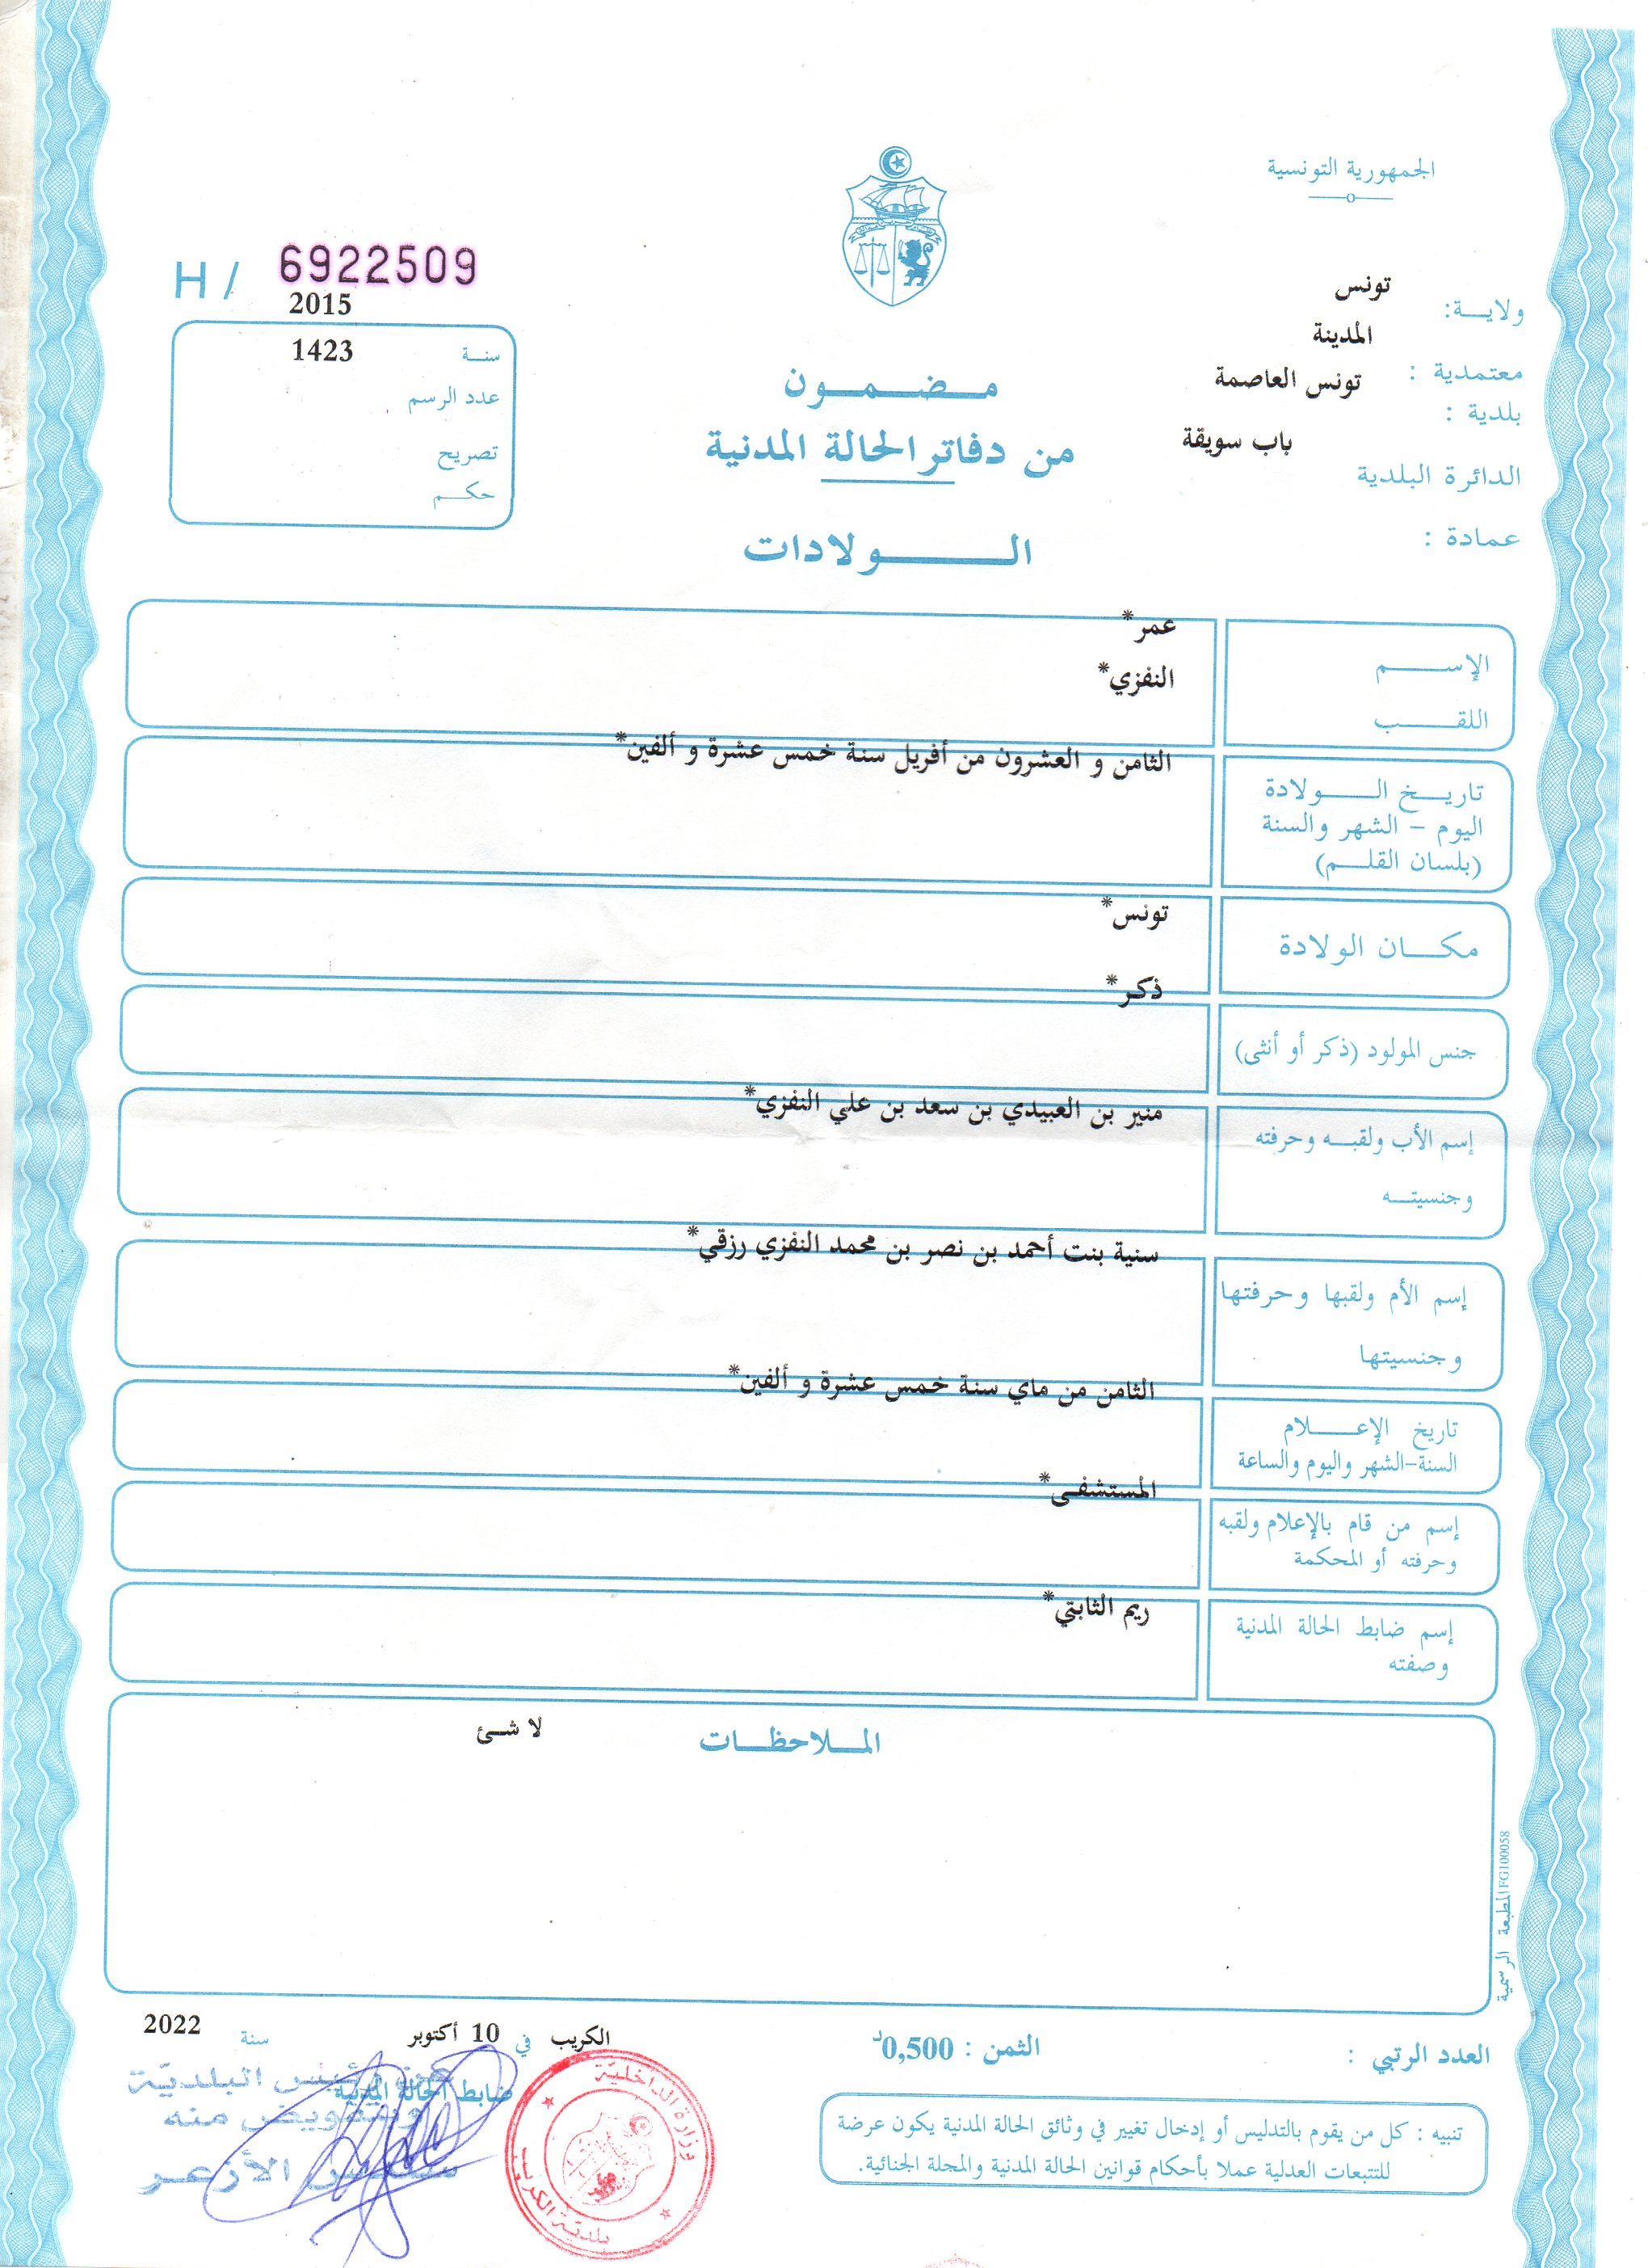 الجمهورية التونسية
H / 6922509
ولايـــة: تونس
معتمدية : المدينة
بلدية : تونس العاصمة
الدائرة البلدية باب سويقة
عمادة :
مـــضـــمـــون
من دفاتر الحالة المدنية
الـــــــولادات
2015
سنــة 1423
عدد الرسم
تصريح
حكــم
الإســــــم عمر*
اللقــــب النفزي*
تاريــخ الــــولادة الثامن و العشرون من أفريل سنة خمس عشرة و ألفين*
اليوم – الشهر والسنة
(بلسان القلــم)
مكـــان الولادة تونس*
جنس المولود (ذكر أو أنثى) ذكر*
إسم الأب ولقبــه وحرفته منير بن العبيدي بن سعد بن علي النفزي*
وجنسيتــه
إسم الأم ولقبها وحرفتها سنية بنت أحمد بن نصر بن محمد النفزي رزقي*
وجنسيتها
تاريخ الإعــــلام الثامن من ماي سنة خمس عشرة و ألفين*
السنة-الشهر واليوم والساعة
إسم من قام بالإعلام ولقبه المستشفى*
وحرفته أو المحكمة
إسم ضابط الحالة المدنية ريم الثابتي*
وصفته
المــلاحظــات لا شئ
المطبعة الرسمية FG100058
العدد الرتبي :
الثمن : 0,500د
الكريب في 10 أكتوبر سنة 2022
ضابط الحالة المدنية
عن رئيس البلديّة
وبتفويض منه
الأزعر
وزارة الداخليّة
بلديّة الكريب
تنبيه : كل من يقوم بالتدليس أو إدخال تغيير في وثائق الحالة المدنية يكون عرضة
للتتبعات العدلية عملا بأحكام قوانين الحالة المدنية والمجلة الجنائية.